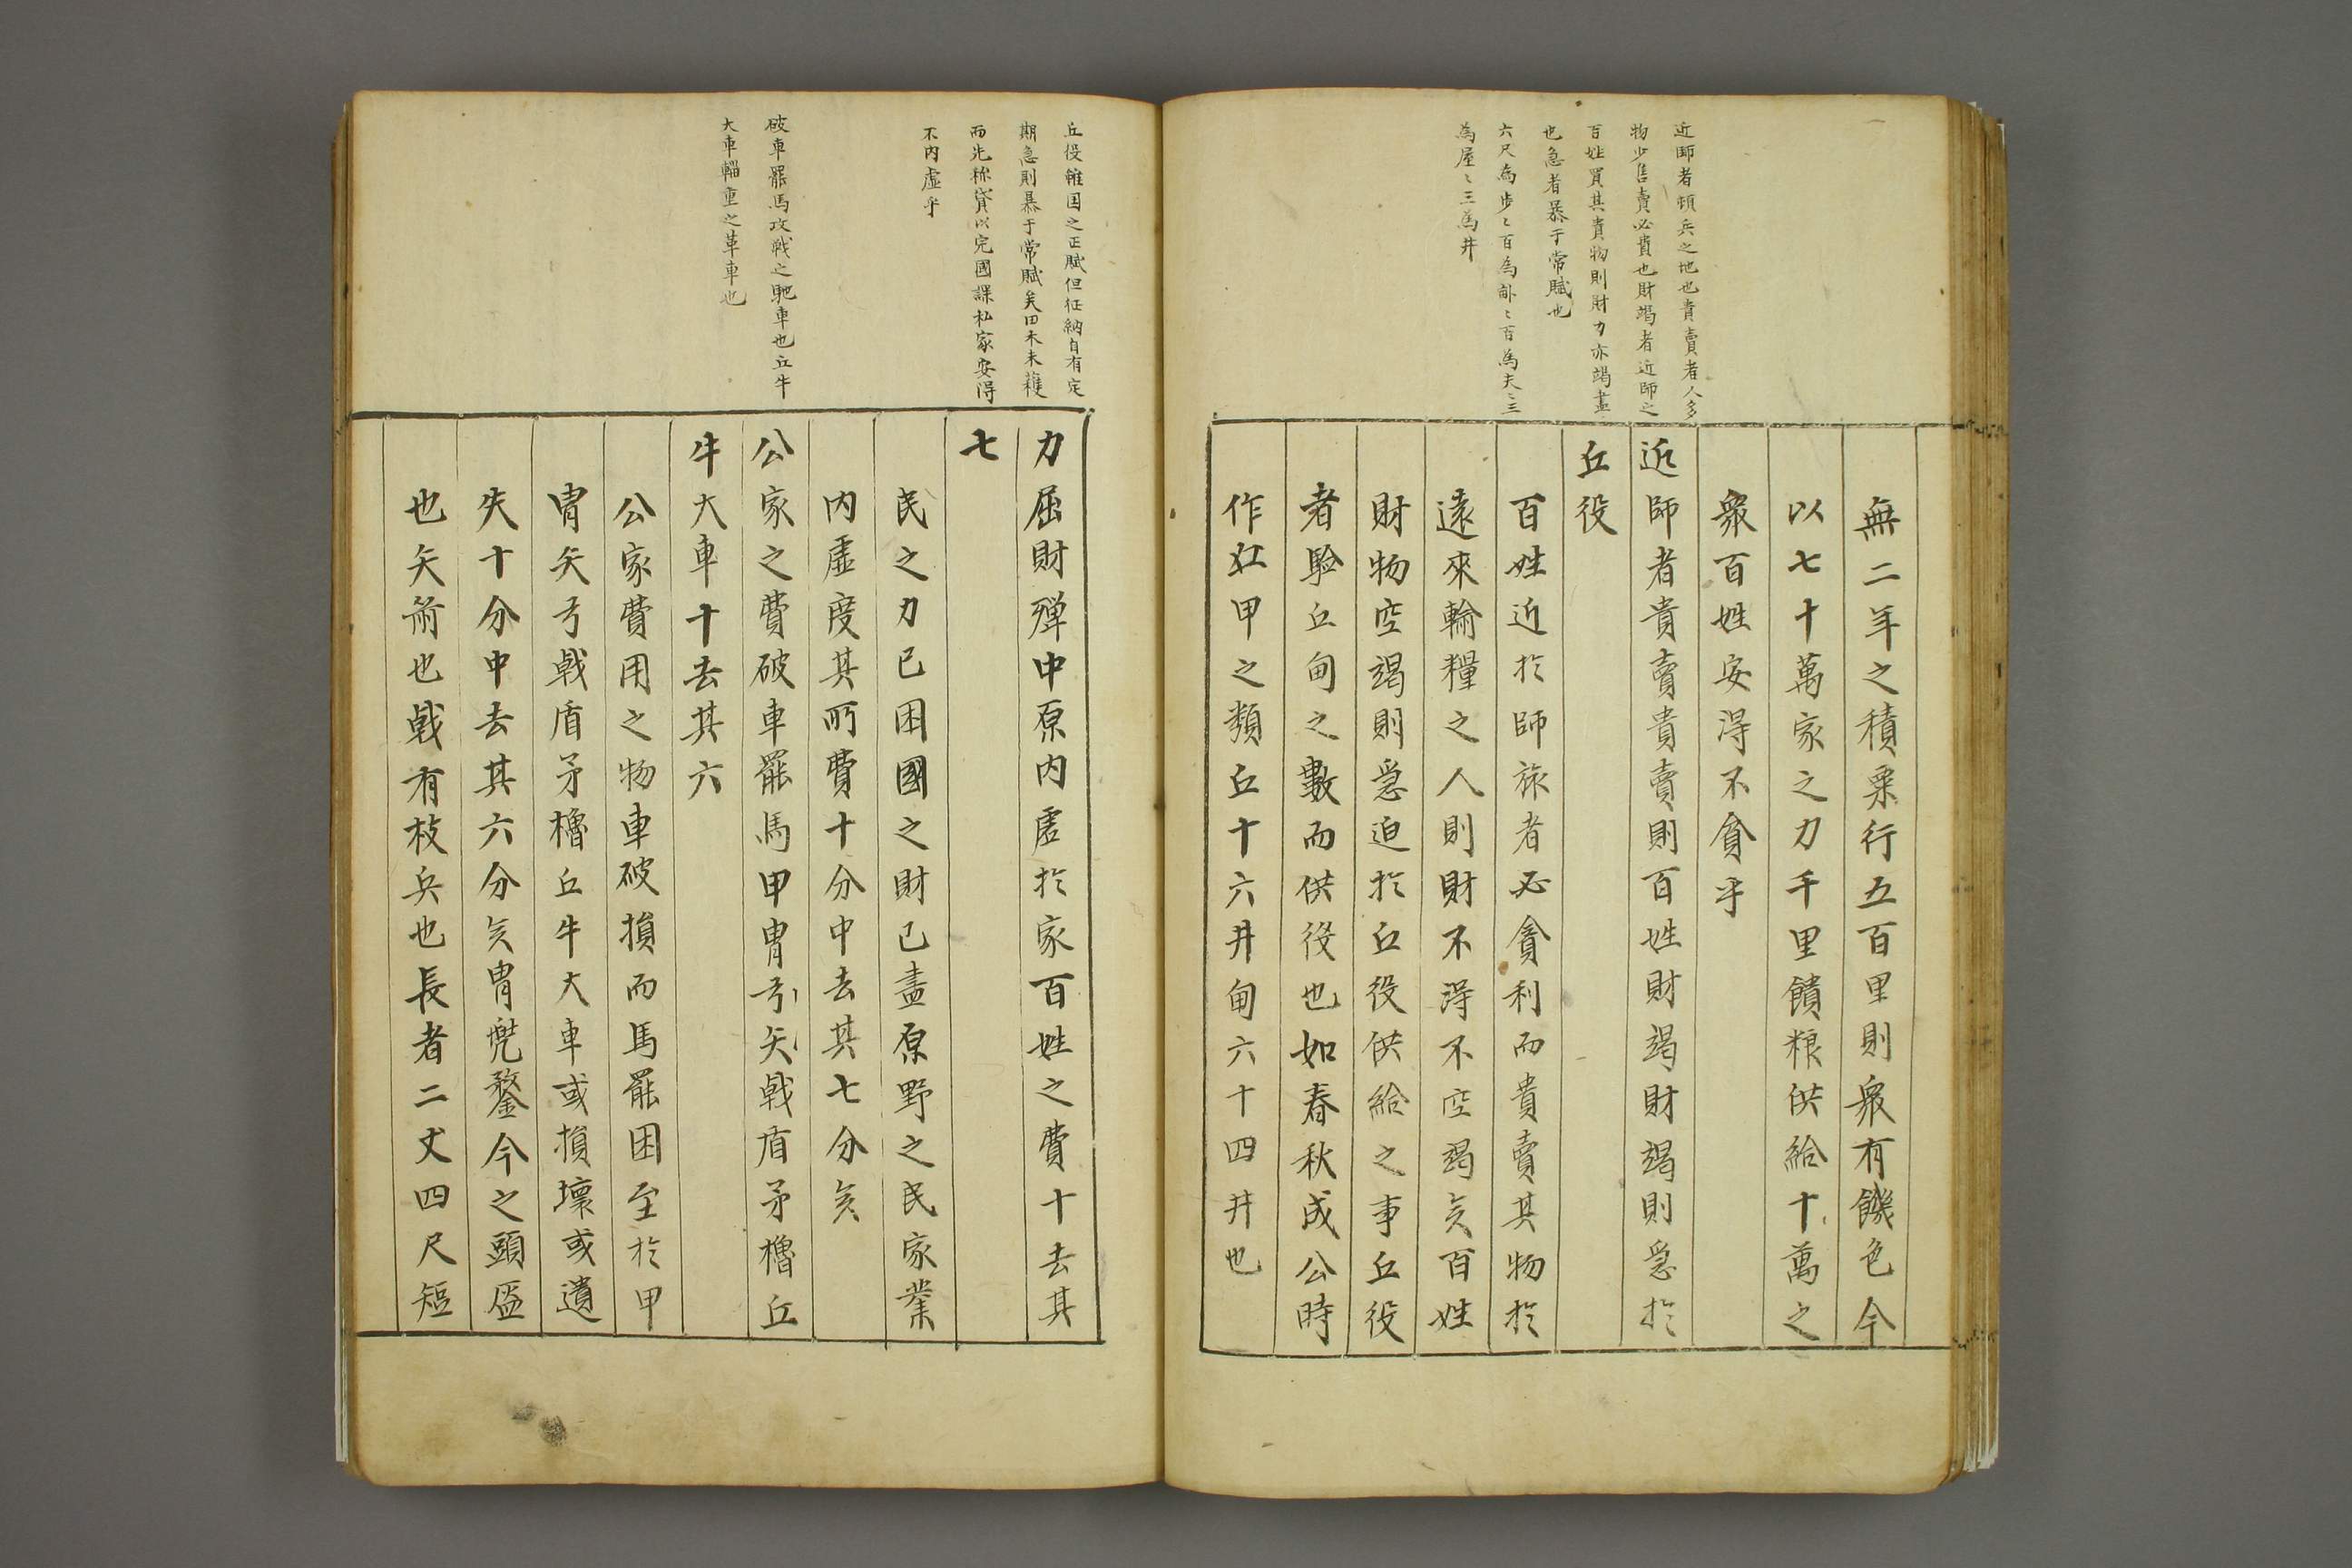 近師者頓兵之地也貴賣者人多
物少售賣必貴也財竭者近師之
百姓買其貴物則財力亦竭盡
也急者暴于常賦也
六尺為步〻百為畝〻百為夫〻三
為屋〻三為井
無二年之積粟行五百里則衆有饑色今
以七十萬家之力千里饋粮供給十萬之
衆百姓安得不貧乎
近師者貴賣貴賣則百姓財竭財竭則急於
丘役
百姓近於師旅者必貪利而貴賣其物於
遠來輸糧之人則財不得不空竭矣百姓
財物空竭則急迫於丘役供給之事丘役
者驗丘甸之數而供役也如春秋成公時
作丘甲之類丘十六井甸六十四井也
丘役雖国之正賦但征納自有定
期急則暴于常賦矣田禾未穫
而先称貸以完國課私家安得
不内虛乎
破車罷馬攻戦之馳車也丘牛
大車輜重之革車也
力屈財殫中原内虛於家百姓之費十去其
七
民之力已困國之財已盡原野之民家業
内虛度其所費十分中去其七分矣
公家之費破車罷馬甲冑弓矢戟盾矛櫓丘
牛大車十去其六
公家費用之物車破損而馬罷困至於甲
冑矢弓戟盾矛櫓丘牛大車或損壞或遺
失十分中去其六分矣冑兜鍪今之頭盔
也矢箭也戟有枝兵也長者二丈四尺短